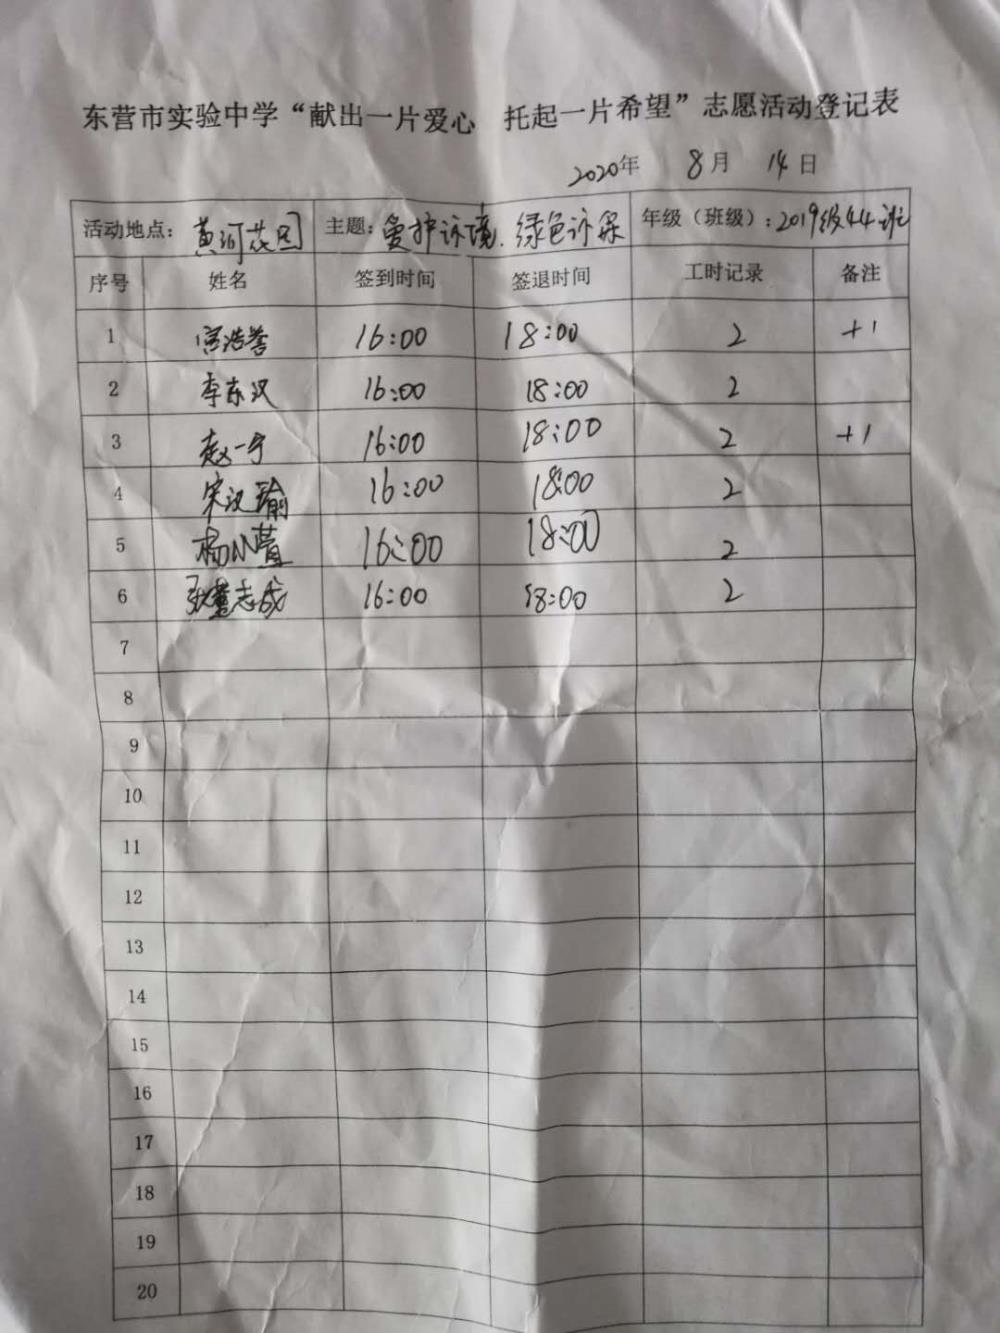 东营市实验中学“献出一片爱心 托起一片希望”志愿活动登记表
2020年 8月 14日
活动地点: 黄河花园 主题: 爱护环境.绿色环保 年级(班级): 2019级44班
序号 姓名 签到时间 签退时间 工时记录 备注
1 宫浩誉 16:00 18:00 2 +1
2 李东汉 16:00 18:00 2
3 赵一宁 16:00 18:00 2 +1
4 宋汉瑜 16:00 18:00 2
5 杨小萱 16:00 18:00 2
6 志成 16:00 18:00 2
7
8
9
10
11
12
13
14
15
16
17
18
19
20